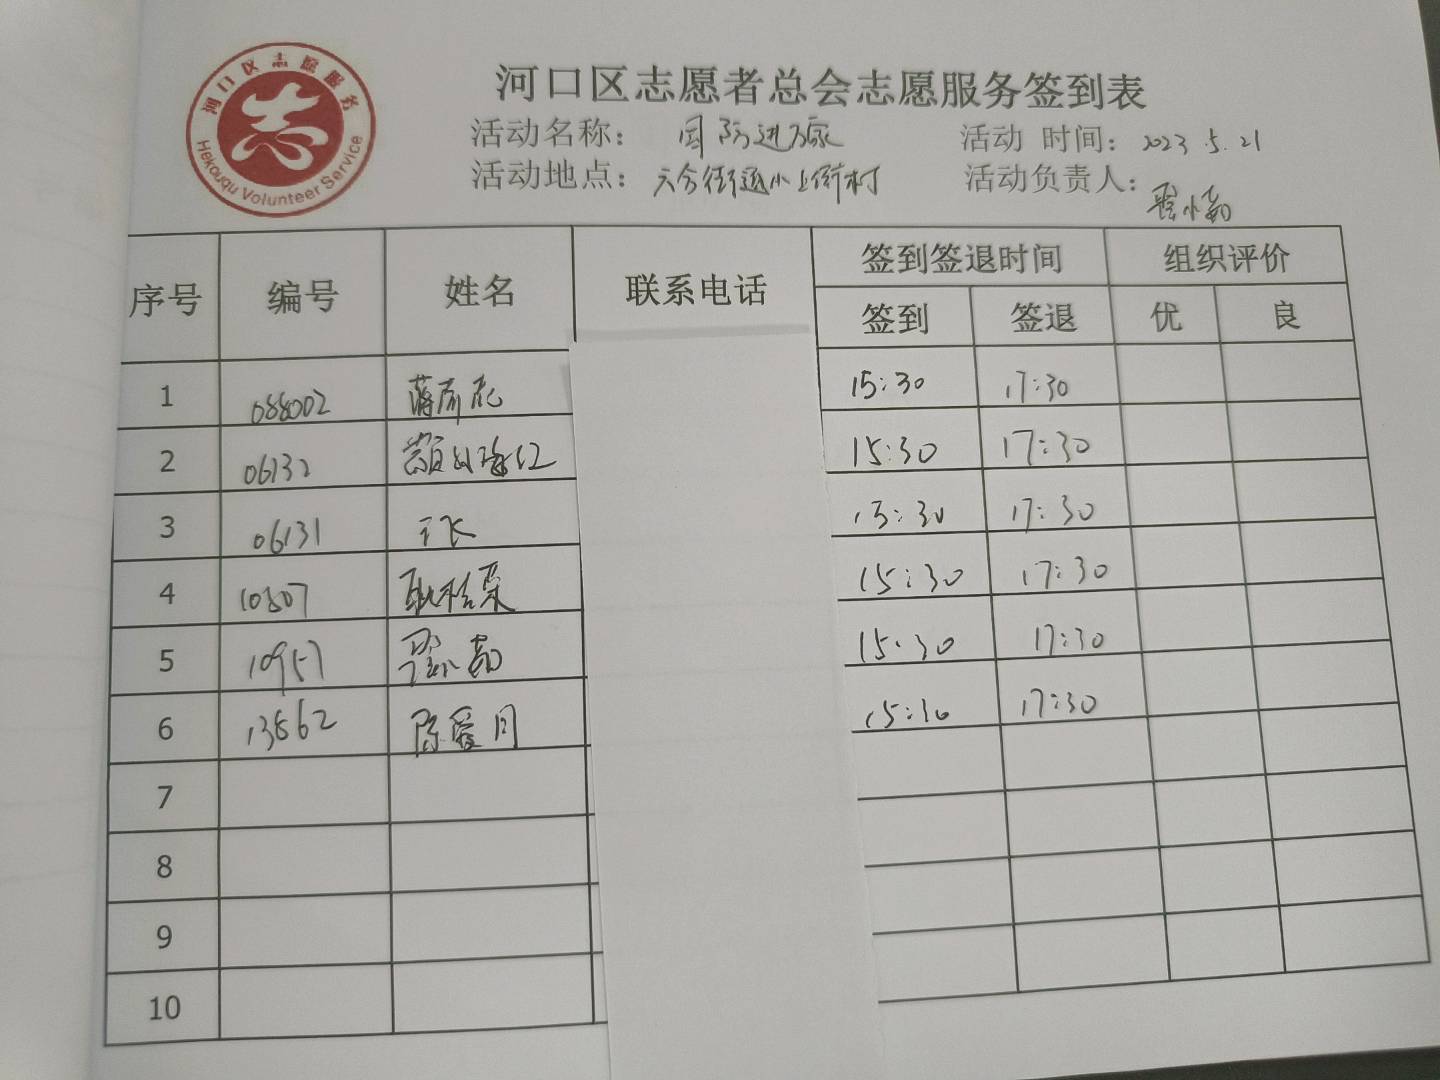 河口区志愿服务
Hekouqu Volunteer Service
志
河口区志愿者总会志愿服务签到表
活动名称: 国防进万家 活动 时间: 2023.5.21
活动地点: 六合街道小上街村 活动负责人:
序号 编号 姓名 联系电话 签到签退时间 组织评价
签到 签退 优 良
1 088002 15:30 17:30
2 06132 15:30 17:30
3 06131 王飞 15:30 17:30
4 10807 15:30 17:30
5 10957 15:30 17:30
6 13862 陈爱月 15:30 17:30
7
8
9
10